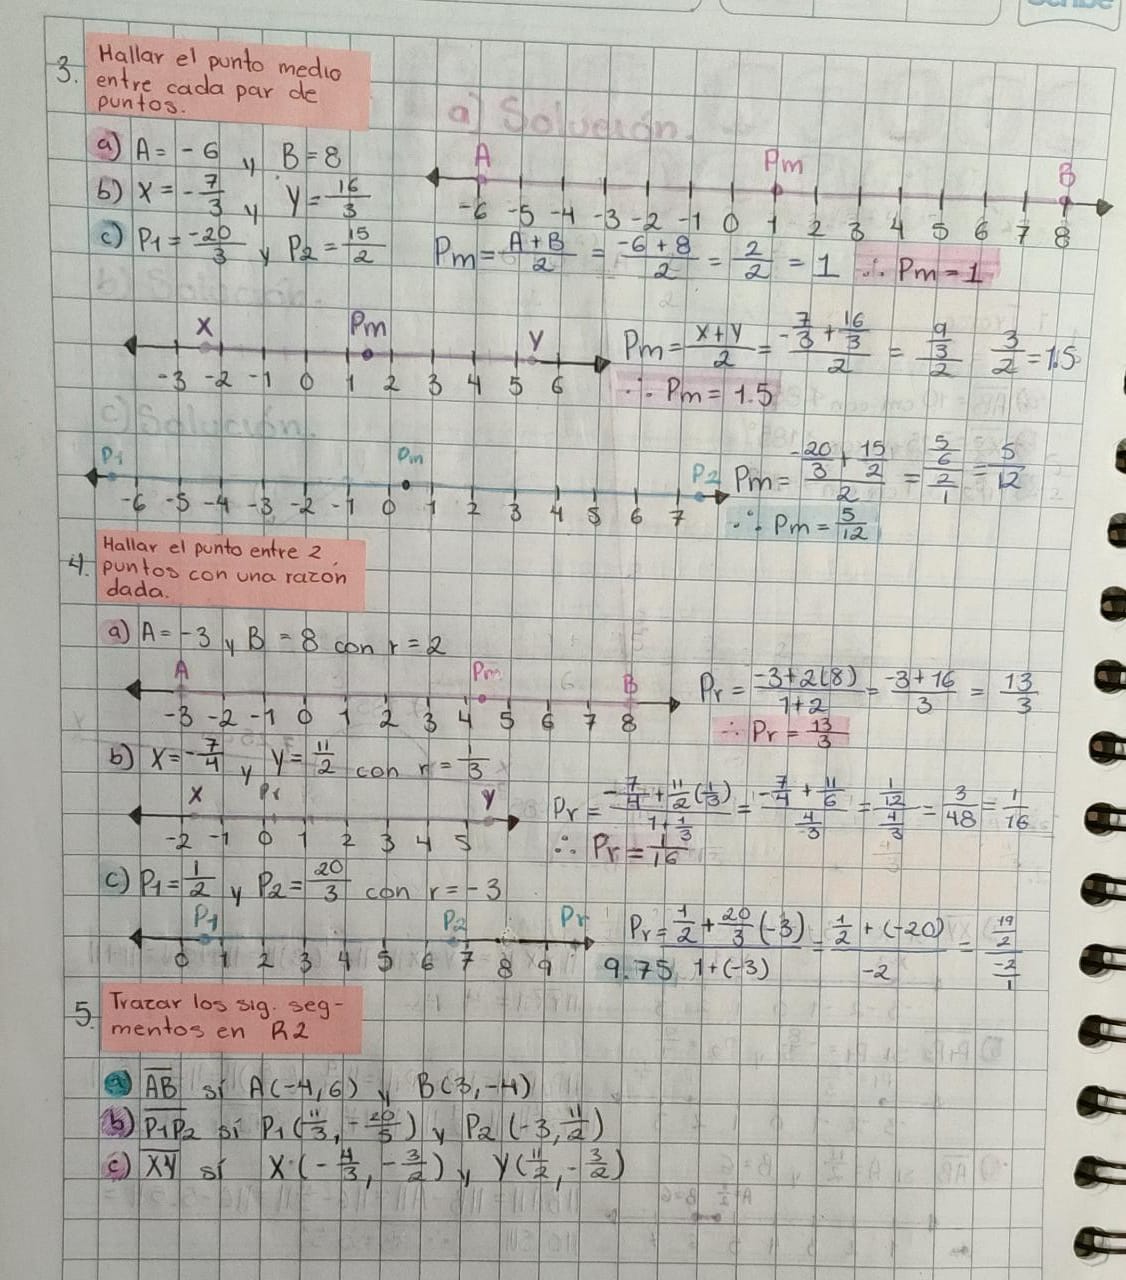 3. Hallar el punto medio
entre cada par de
puntos.
a) Solución.
a) A = -6 y B = 8
b) X = -7/3 y Y = 16/3
c) P1 = -20/3 y P2 = 15/2
A Pm B
-6 -5 -4 -3 -2 -1 0 1 2 3 4 5 6 7 8
Pm = (A+B)/2 = (-6+8)/2 = 2/2 = 1 ∴ Pm = 1
b) Solución.
X Pm Y
-3 -2 -1 0 1 2 3 4 5 6
Pm = (X+Y)/2 = (-7/3 + 16/3)/2 = (9/3)/2 3/2 = 1.5
∴ Pm = 1.5
c) Solución.
P1 Pm P2
-6 -5 -4 -3 -2 -1 0 1 2 3 4 5 6 7
Pm = (-20/3 + 15/2)/2 = (5/6)/(2/1) = 5/12
∴ Pm = 5/12
4. Hallar el punto entre 2
puntos con una razón
dada.
a) A = -3 y B = 8 con r = 2
A Pm B
-3 -2 -1 0 1 2 3 4 5 6 7 8
Pr = (-3+2(8))/(1+2) = (-3+16)/3 = 13/3
∴ Pr = 13/3
b) X = -7/4 y Y = 11/2 con r = 1/3
X Pr Y
-2 -1 0 1 2 3 4 5
Pr = (-7/4 + 11/2 (1/3))/(1 + 1/3) = (-7/4 + 11/6)/(4/3) = (1/12)/(4/3) = 3/48 = 1/16
∴ Pr = 1/16
c) P1 = 1/2 y P2 = 20/3 con r = -3
P1 P2 Pr
0 1 2 3 4 5 6 7 8 9
Pr = (1/2 + 20/3 (-3))/(1+(-3)) = (1/2 + (-20))/(-2) = (19/2)/(-2/1)
9.75
5. Trazar los sig. seg-
mentos en R2
a) AB si A(-4,6) y B(3,-4)
b) P1P2 si P1(11/3, -20/3) y P2(-3, 11/2)
c) XY si X(-4/3, -3/2) y Y(11/2, -3/2)